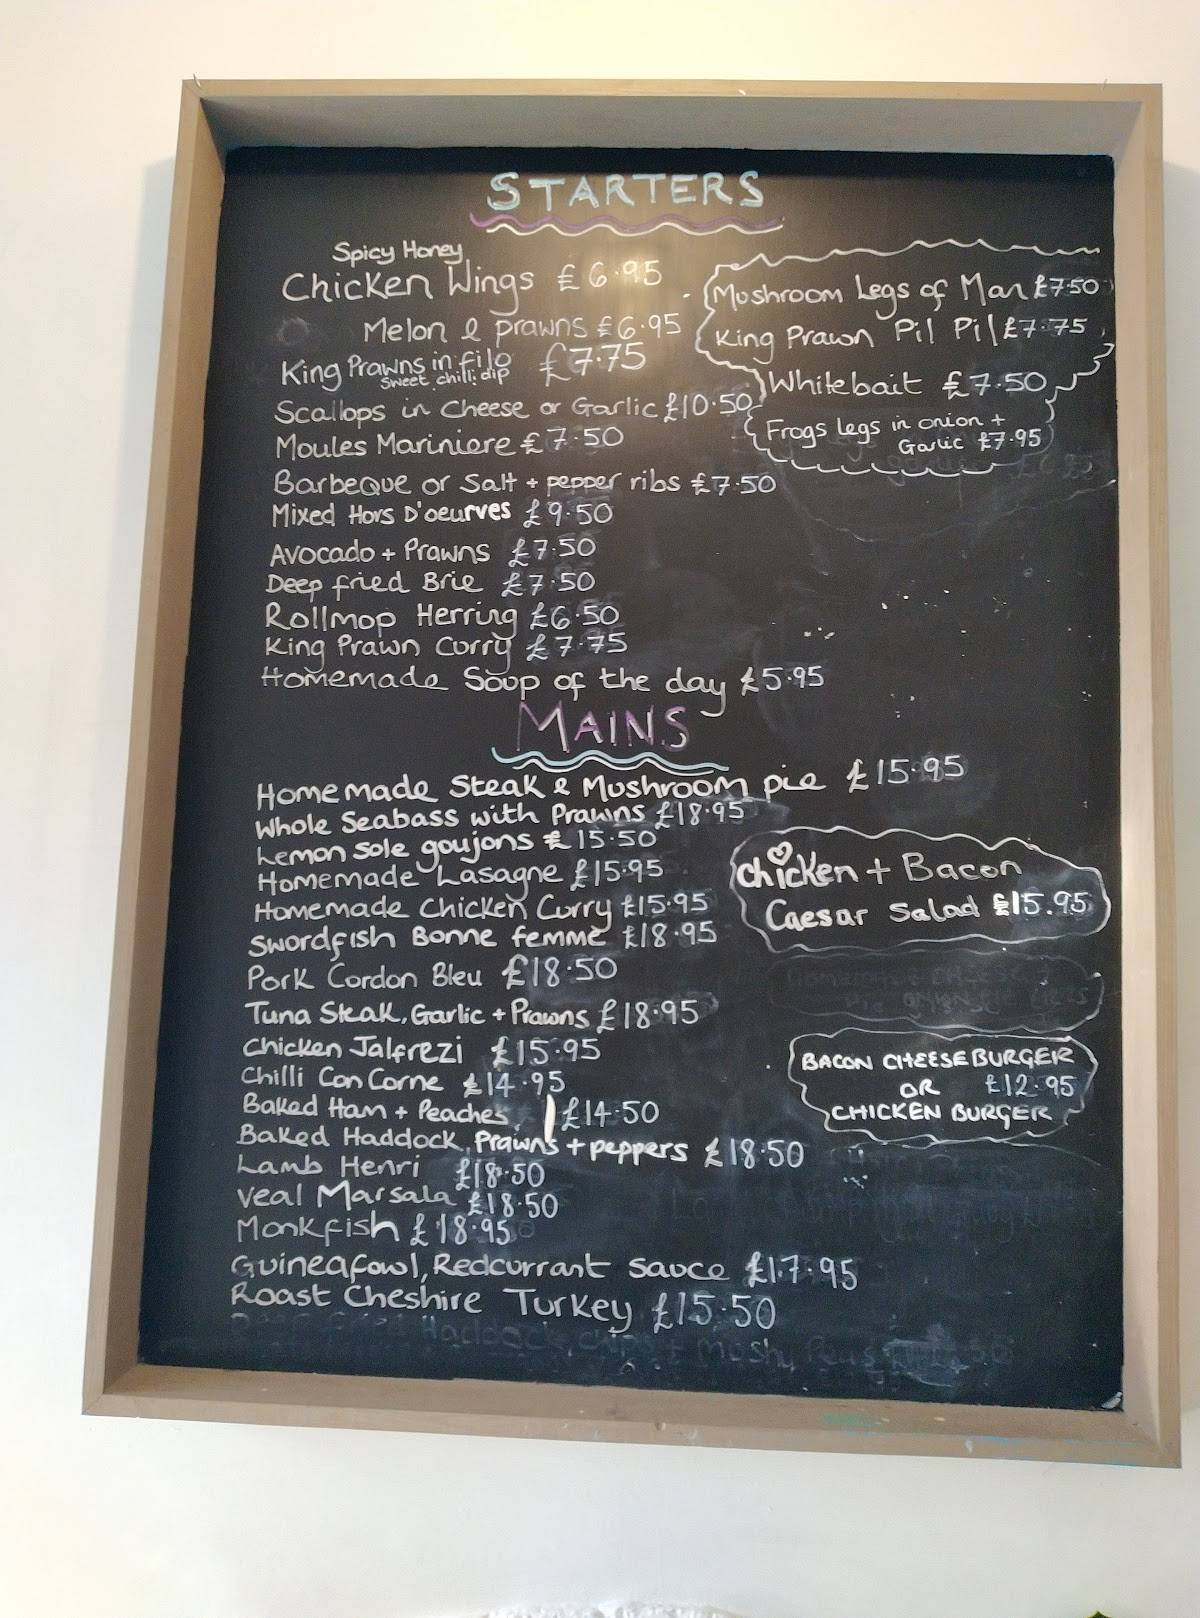 STARTERS
Spicy Honey
Chicken Wings £6.95
Melon & prawns £6.95
King Prawns in filo £7.75
sweet chilli dip
Scallops in Cheese or Garlic £10.50
Moules Mariniere £7.50
Barbeque or Salt + pepper ribs £7.50
Mixed Hors D'oeurves £9.50
Avocado + Prawns £7.50
Deep fried Brie £7.50
Rollmop Herring £6.50
King Prawn Curry £7.75
Homemade Soup of the day £5.95
Mushroom Legs of Man £7.50
King Prawn Pil Pil £7.75
Whitebait £7.50
Frogs Legs in onion +
Garlic £7.95
MAINS
Homemade Steak & Mushroom pie £15.95
Whole Seabass with Prawns £18.95
Lemon Sole goujons £15.50
Homemade Lasagne £15.95
Homemade Chicken Curry £15.95
Swordfish Bonne femme £18.95
Pork Cordon Bleu £18.50
Tuna Steak, Garlic + Prawns £18.95
Chicken Jalfrezi £15.95
Chilli Con Corne £14.95
Baked Ham + Peaches £14.50
Baked Haddock, Prawns + peppers £18.50
Lamb Henri £18.50
Veal Marsala £18.50
Monkfish £18.95
Guineafowl, Redcurrant sauce £17.95
Roast Cheshire Turkey £15.50
Haddock, chips + Mushy Peas
Chicken + Bacon
Caesar Salad £15.95
BACON CHEESEBURGER
OR £12.95
CHICKEN BURGER